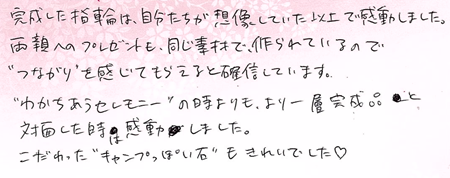 完成した指輪は、自分たちが想像していた以上で感動しました。
両親へのプレゼントも、同じ素材で、作られているので
"つながり"を感じてもらえると確信しています。
"わかちあうセレモニー"の時よりも、より一層完成品と
対面した時は感動しました。
こだわった"キャンプっぽい石"もきれいでした♡